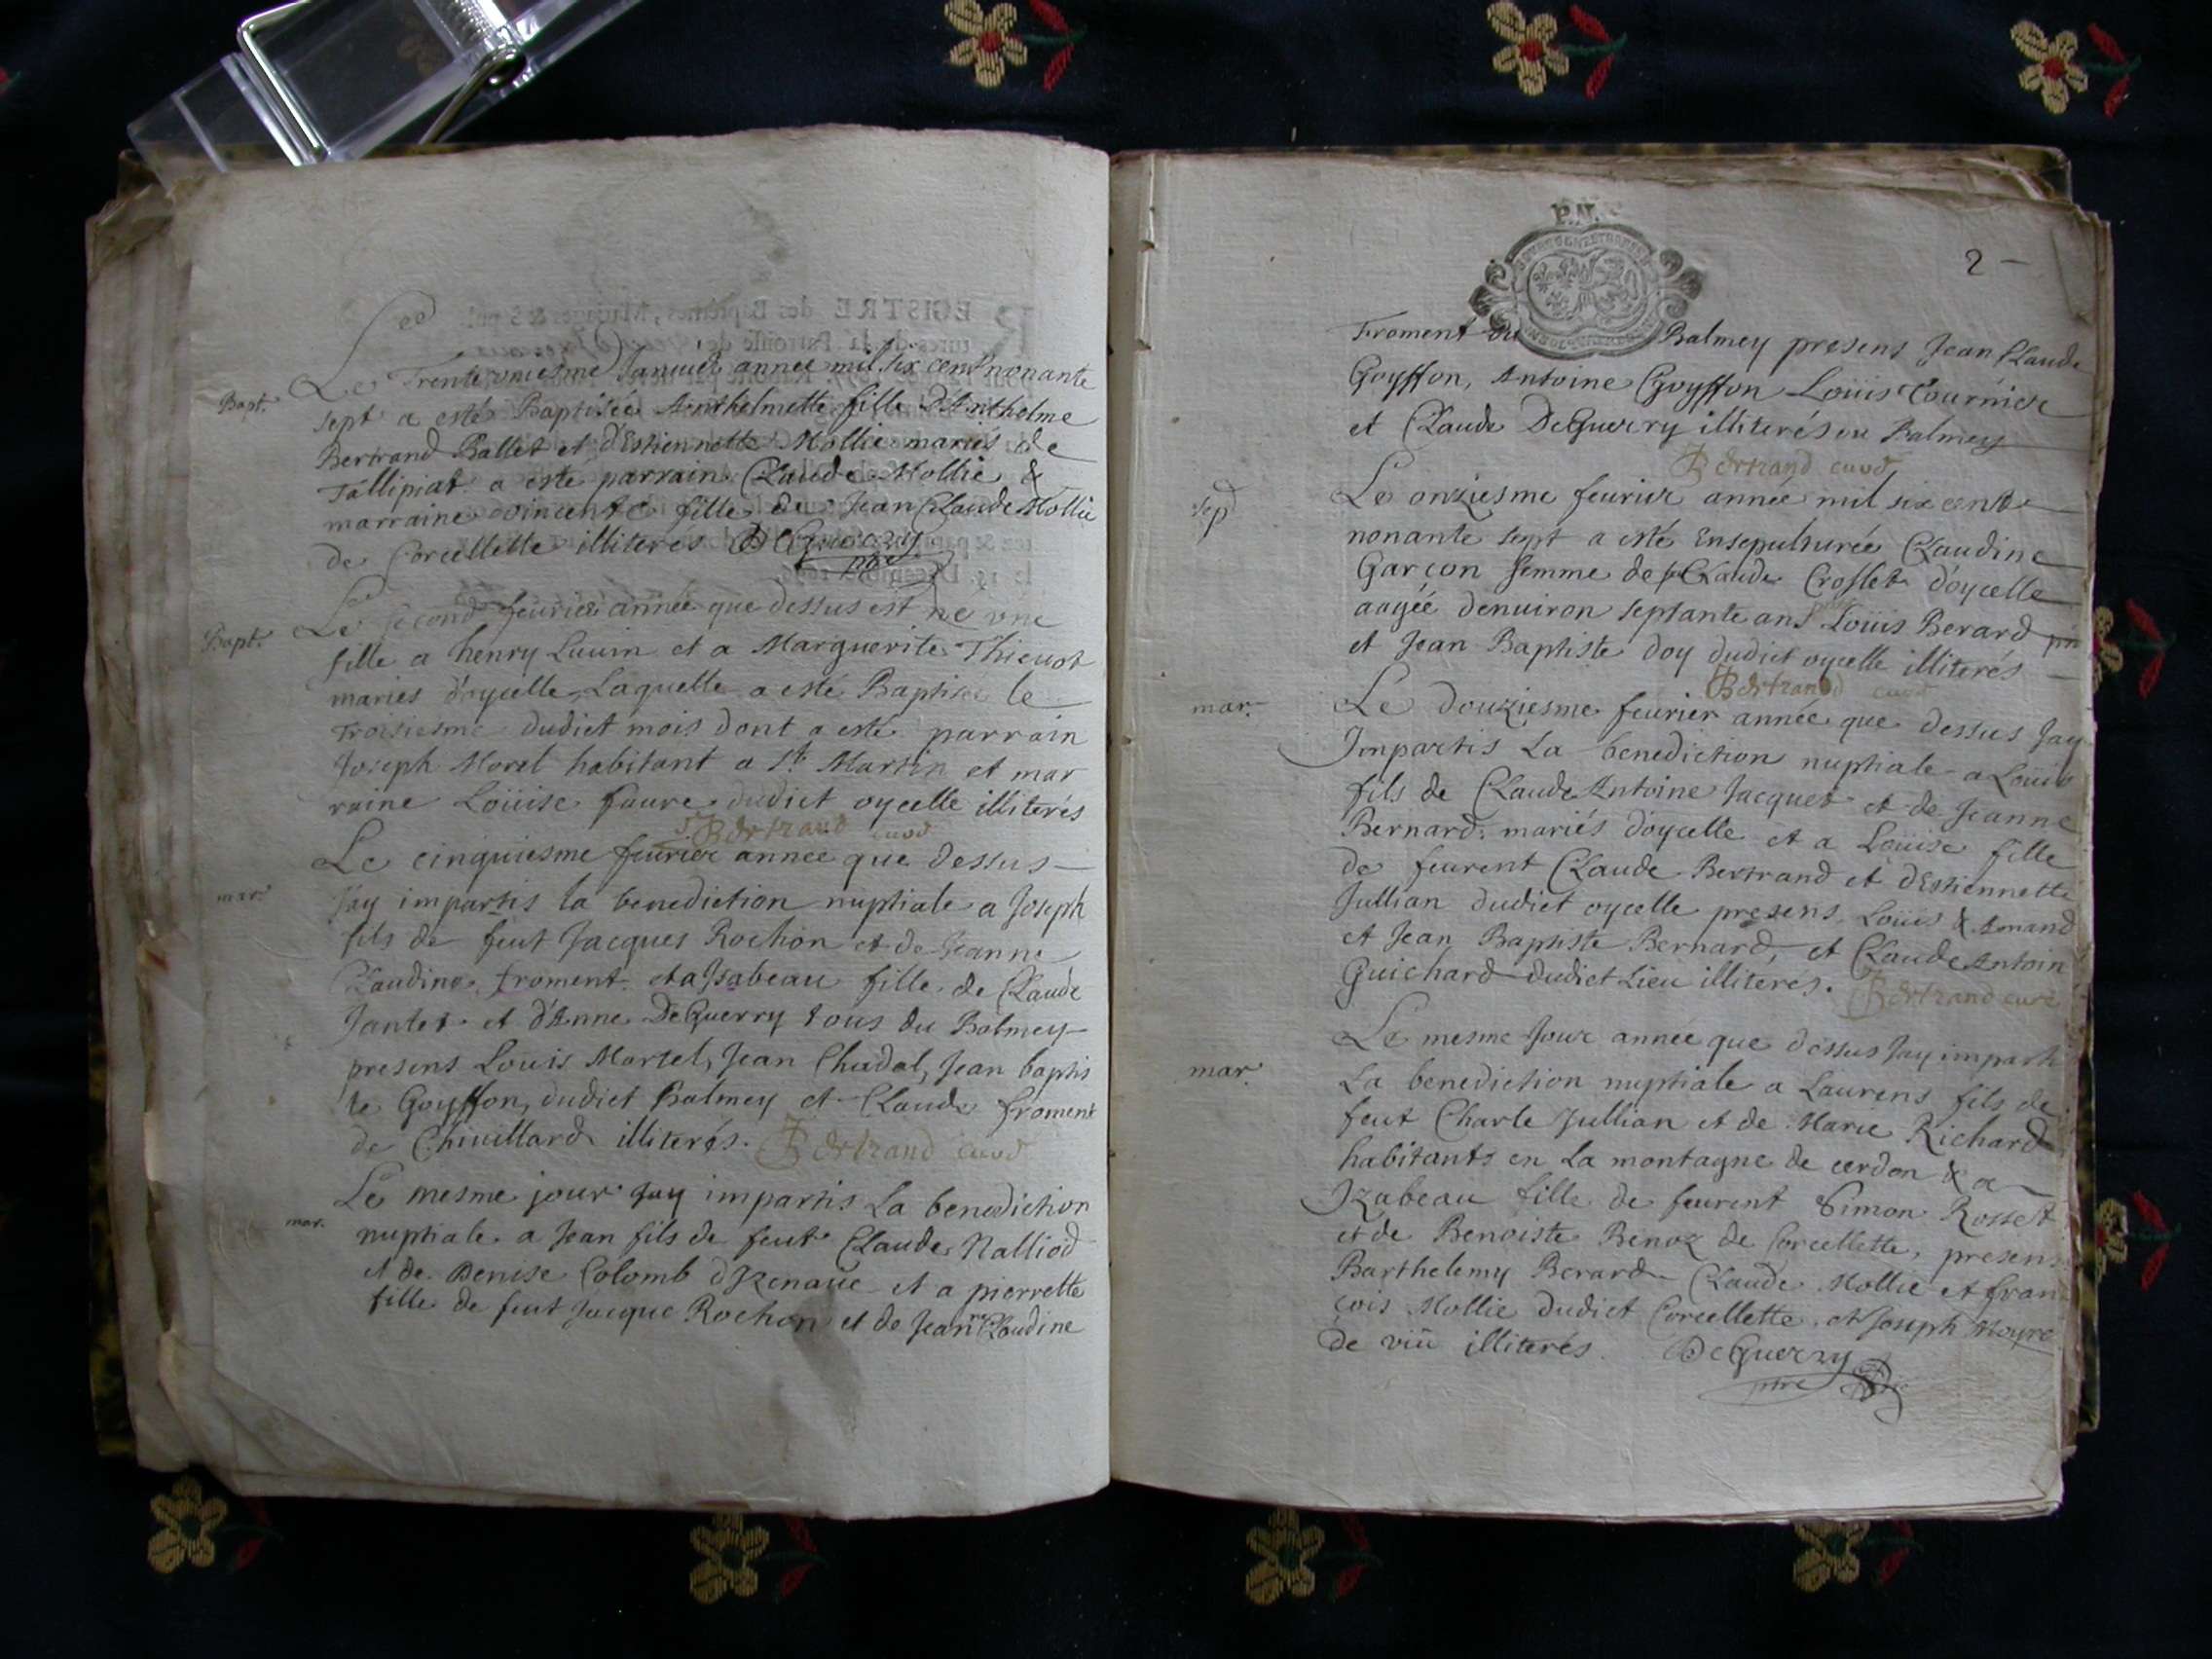 Bapt. Le Trente uniesme Januier année mil six cent nonante
sept a esté Baptisée Anthelmette fille d'Anthelme
Bertrand Ballet et d'Estiennette Mollie mariés de
Tallipiat a esté parrain Claude Mollie &
marraine vincente fille de Jean Claude Mollie
de Corcellette illiterés DeGuerry
ptre
Bapt. Le second feurier année que dessus est né vne
fille a henry Liuuin et a Marguerite Thieuot
mariés d'oycelle Laquelle a esté Baptisée le
Troisiesme dudict mois dont a esté parrain
Joseph Morel habitant a St Martin et mar
raine Loüise faure dudict oycelle illiterés
Bertrand curé
Le cinquiesme feurier année que dessus
mar. J'ay impartis la benediction nuptiale a Joseph
fils de feut Jacques Rochon et de Jeanne
Claudine froment et a Jsabeau fille de Claude
Jantet et d'Anne DeGuerry tous du Balmey
presens Louis Martel, Jean Chudal, Jean baptis
te Goyffon, dudict Balmey et Claude froment
de Cheuillard illiterés. Bertrand curé
Le mesme jour Jay impartis La benediction
mar. nuptiale a Jean fils de feut Claude Nalliod
et de Denise Colomb d'Jzenaue et a pierrette
fille de feut Jacque Rochon et de Jeanne Claudine
P.N.
2
Froment du Balmey presens Jean Claude
Goyffon, Antoine Goyffon Loüis Tournier
et Claude DeGuerry illiterés du Balmey
Bertrand curé
sep Le onziesme feurier année mil six cent
nonante sept a esté Ensepulturée Claudine
Garçon femme de Claude Croslet d'oycelle
aagée denuiron septante ans Loüis Berard
et Jean Baptiste doy dudict oycelle illiterés
Bertrand curé
mar. Le douziesme feurier année que dessus Jay
Jmpartis La benediction nuptiale a Loüis
fils de Claude Antoine Jacquet et de Jeanne
Bernard mariés d'oycelle et a Loüise fille
de feurent Claude Bertrand et d'Estiennette
Jullian dudict oycelle presens Loüis & Amand
et Jean Baptiste Bernard, et Claude Antoin
Guichard dudict Lieu illiterés. Bertrand curé
Le mesme Jour année que dessus Jay imparti
mar. La benediction nuptiale a Laurens fils de
feut Charle Jullian et de Marie Richard
habitants en La montagne de cerdon & a
Jzabeau fille de feurent Simon Rosset
et de Benoiste Benoz de Corcellette, presens
Barthelemy Berard Claude Mollie et fran
çois Mollie dudict Corcellette et Joseph Moyre
de viü illiterés. DeGuerry
ptre